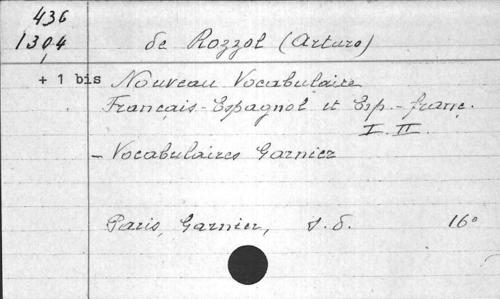 436
1304
de Rozzol (Arturo)
+ 1 bis
Nouveau Vocabulaire
Français-Espagnol et Esp.-franç.
I. II.
- Vocabulaires Garnier
Paris, Garnier, s.d. 16°